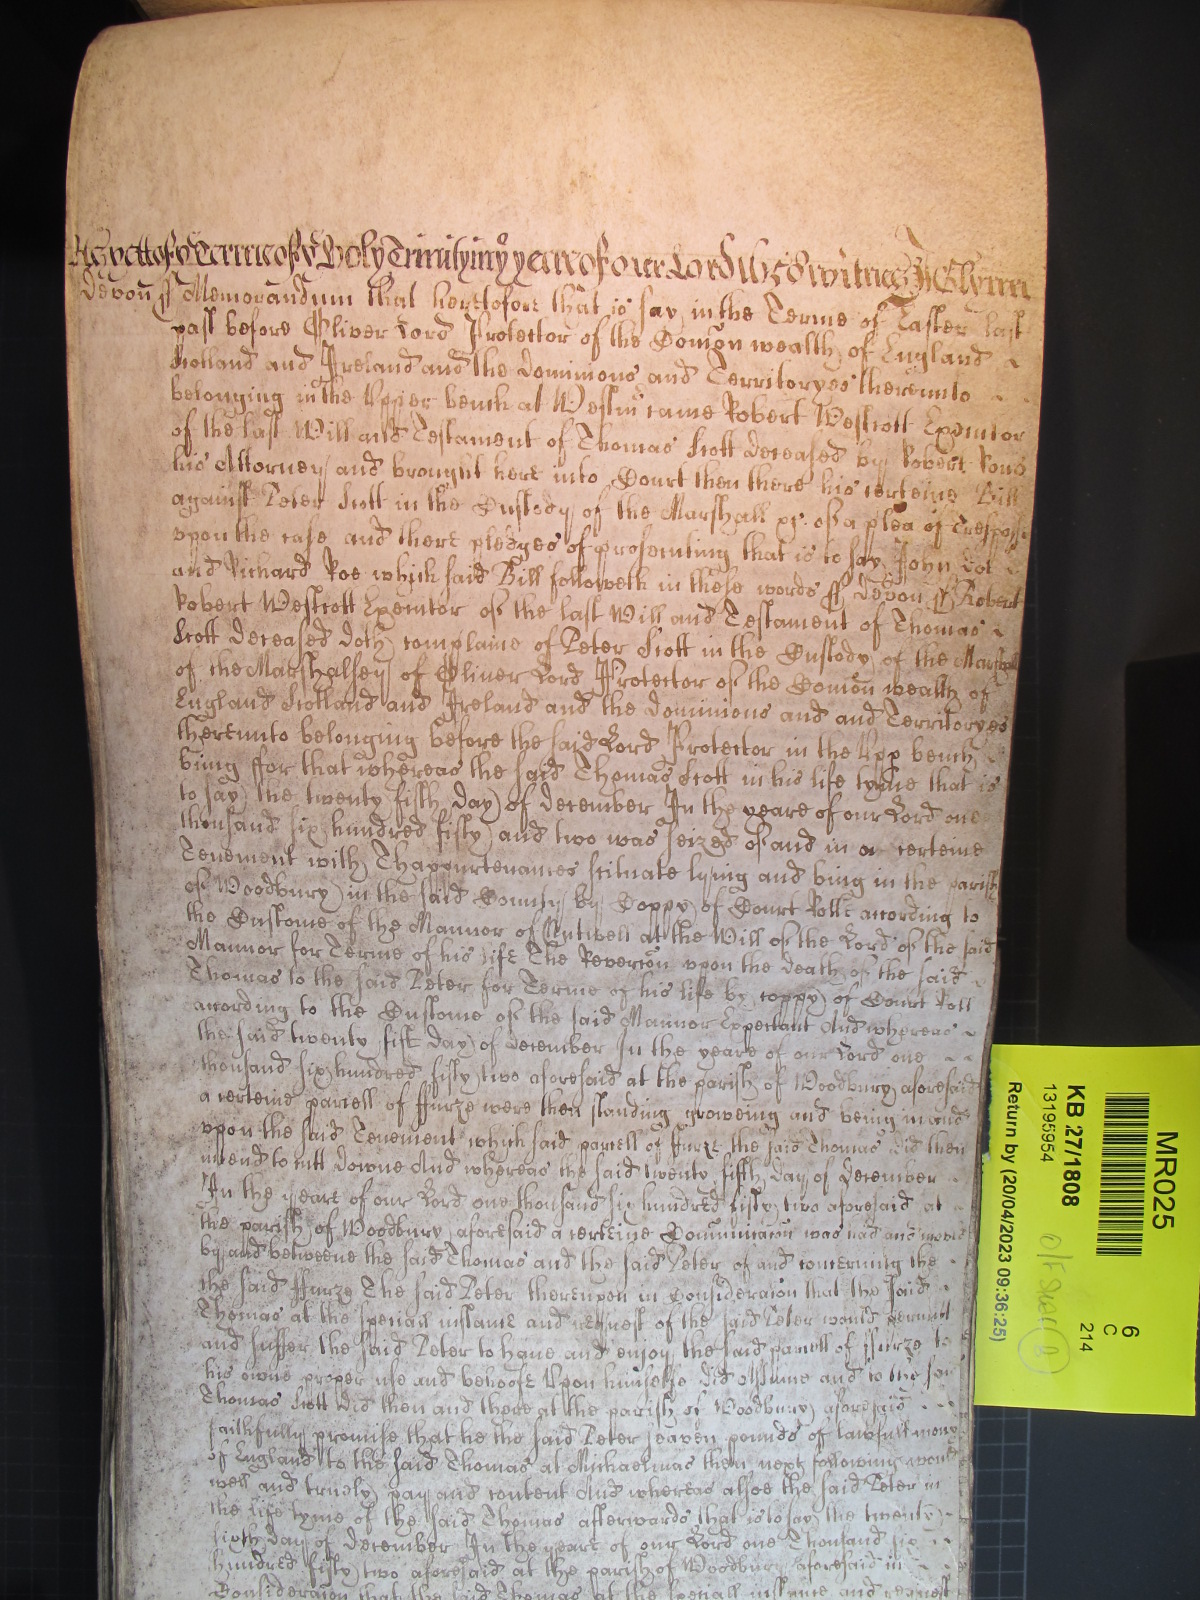 As yett of ye Terme of ye Holy Trinity in ye yeare of our Lord 1658 witnes Jo Glynn
Devon ss Memorandum that heretofore that is to say in the Terme of Easter last
past before Oliver Lord Protector of the Comon wealth of England
Scotland and Ireland and the dominions and Territoryes thereunto
belonging in the Upper bench at Westm came Robert Westcott Executor
of the last Will and Testament of Thomas Scott deceased by Robert
his Attorney and brought here into Court then there his certeine Bill
against Peter Scott in the Custody of the Marshall &c. of a plea of Trespasse
upon the case and there pledges of prosecuting that is to say John Doe
and Richard Roe which said Bill followeth in these words ss Devon ss Robert
Robert Westcott Executor of the last Will and Testament of Thomas
Scott deceased doth complaine of Peter Scott in the Custody of the Marshall
of the Marshalsey of Oliver Lord Protector of the Comon wealth of
England Scotland and Ireland and the dominions and and Territoryes
thereunto belonging before the said Lord Protector in the Upp bench
being ffor that whereas the said Thomas Scott in his life tyme that is
to say the twenty fifth day of december In the yeare of our Lord one
thousand six hundred fifty and two was seized of and in a certeine
Tenement with Thappurtenances scituate lying and being in the parish
of Woodbury in the said County by Coppy of Court Rolle according to
the Custome of the Mannor of Nutwell at the Will of the Lord of the said
Mannor for Terme of his life The Revercon upon the death of the said
Thomas to the said Peter for Terme of his life by coppy of Court Roll
according to the Custome of the said Mannor Expectant And whereas
the said twenty fift day of december In the yeare of our Lord one
thousand six hundred fifty two aforesaid at the parish of Woodbury aforesaid
a certeine parcell of ffurze were then standing groweing and being in and
upon the said Tenement which said parcell of furze the said Thomas did then
intend to cutt downe And whereas the said twenty fifth day of december
In the yeare of our Lord one thousand six hundred fifty two aforesaid at
the parish of Woodbury aforesaid a certeine Communicacon was had and moved
by and betweene the said Thomas and the said Peter of and concerning the
the said ffurze The said Peter thereupon in Consideracon that the said
Thomas at the speciall instance and request of the said Peter would permitt
and suffer the said Peter to have and enjoy the said parcell of ffurze to
his owne proper use and behoofe Upon himselfe did assume and to the said
Thomas Scott did then and there at the parish of Woodbury aforesaid
faithfully promise that he the said Peter seaven pounds of lawfull money
of England to the said Thomas at Michaelmas then next following would
well and truely pay and content And whereas alsoe the said Peter in
the life tyme of the said Thomas afterwards that is to say the twenty
sixth day of december In the yeare of our Lord one Thousand six
hundred fifty two aforesaid at the parish of Woodbury aforesaid in
Consideracon that the said Thomas at the speciall instance and request
MR025
6
C
214
KB 27/1808
13195954
Return by (20/04/2023 09:36:25)